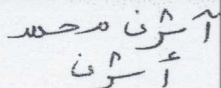 أشرف محمد
أشرف